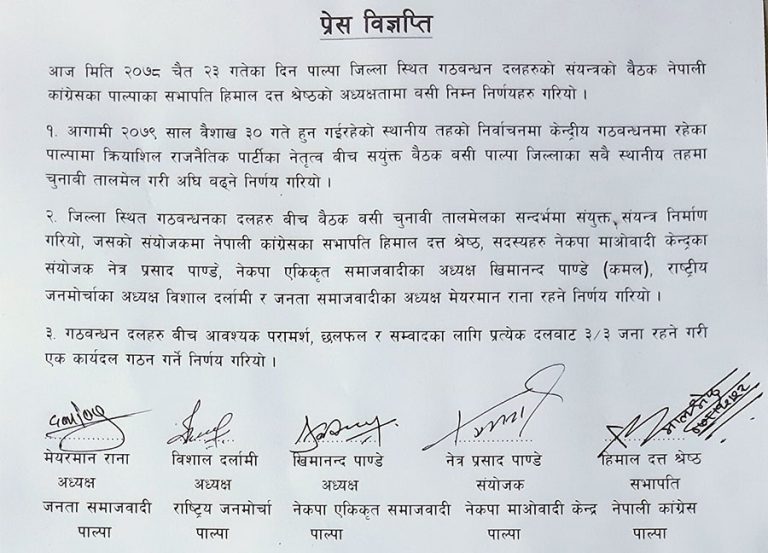 प्रेस विज्ञप्ति
आज मिति २०७८ चैत २३ गतेका दिन पाल्पा जिल्ला स्थित गठवन्धन दलहरुको संयन्त्रको बैठक नेपाली
कांग्रेसका पाल्पाका सभापति हिमाल दत्त श्रेष्ठको अध्यक्षतामा वसी निम्न निर्णयहरु गरियो ।
१. आगामी २०७९ साल वैशाख ३० गते हुन गईरहेको स्थानीय तहको निर्वाचनमा केन्द्रीय गठवन्धनमा रहेका
पाल्पामा क्रियाशिल राजनैतिक पार्टीका नेतृत्व बीच सयुंक्त बैठक वसी पाल्पा जिल्लाका सवै स्थानीय तहमा
चुनावी तालमेल गरी अघि वढ्ने निर्णय गरियो ।
२. जिल्ला स्थित गठवन्धनका दलहरु बीच बैठक वसी चुनावी तालमेलका सन्दर्भमा संयुक्त संयन्त्र निर्माण
गरियो, जसको संयोजकमा नेपाली कांग्रेसका सभापति हिमाल दत्त श्रेष्ठ, सदस्यहरु नेकपा माओवादी केन्द्रका
संयोजक नेत्र प्रसाद पाण्डे, नेकपा एकिकृत समाजवादीका अध्यक्ष खिमानन्द पाण्डे (कमल), राष्ट्रीय
जनमोर्चाका अध्यक्ष विशाल दर्लामी र जनता समाजवादीका अध्यक्ष मेयरमान राना रहने निर्णय गरियो ।
३. गठवन्धन दलहरु बीच आवश्यक परामर्श, छलफल र सम्वादका लागि प्रत्येक दलवाट ३/३ जना रहने गरी
एक कार्यदल गठन गर्ने निर्णय गरियो ।
मेयरमान राना विशाल दर्लामी खिमानन्द पाण्डे नेत्र प्रसाद पाण्डे हिमाल दत्त श्रेष्ठ
अध्यक्ष अध्यक्ष अध्यक्ष संयोजक सभापति
जनता समाजवादी राष्ट्रिय जनमोर्चा नेकपा एकिकृत समाजवादी नेकपा माओवादी केन्द्र नेपाली कांग्रेस
पाल्पा पाल्पा पाल्पा पाल्पा पाल्पा